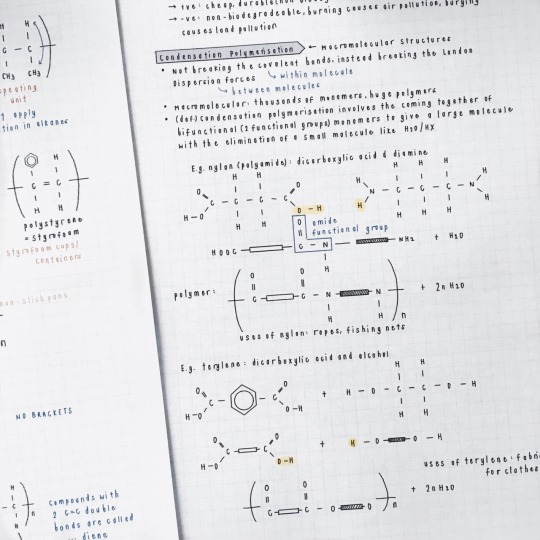 → +ve: cheap, durable
→ -ve: non-biodegradeable, burning causes air pollution, burying
causes land pollution
Condensation Polymerisation ← Macromolecular structures
• Not breaking the covalent bonds, instead breaking the London
dispersion forces ↳ within molecule
↳ between molecules
• Macromolecular: thousands of monomers, huge polymers
• (def) Condensation polymerisation involves the coming together of
bifunctional (2 functional groups) monomers to give a large molecule
with the elimination of a small molecule like H2O/HX
E.g. nylon (polyamide): dicarboxylic acid & diamine
H H H H H H
O O H H
C - C - C - C N - C - C - C - N
H-O O - H H H
H H H H H
O amide
functional group
HOOC C - N NH2 + H2O
H
O O
polymer: C C - N N + 2n H2O
H H n
uses of nylon: ropes, fishing nets
E.g. terylene: dicarboxylic acid and alcohol
H H
O O
C - C + H - O - C - C - O - H
H-O O-H
H H
O O
C - C + H - O - O - H
H-O O-H
uses of terylene: fabri
for clothes
O O
C - C - O - O + 2n H2O
n
H H
C - C
CH3 CH3
repeating
unit
apply
tion in alkanes
H
C = C
H H
polystyrene
= styrofoam
styrofoam cups/
containers
non-stick pans
n
NO BRACKETS
H
C
H n
compounds with
2 C=C double
bonds are called
diene